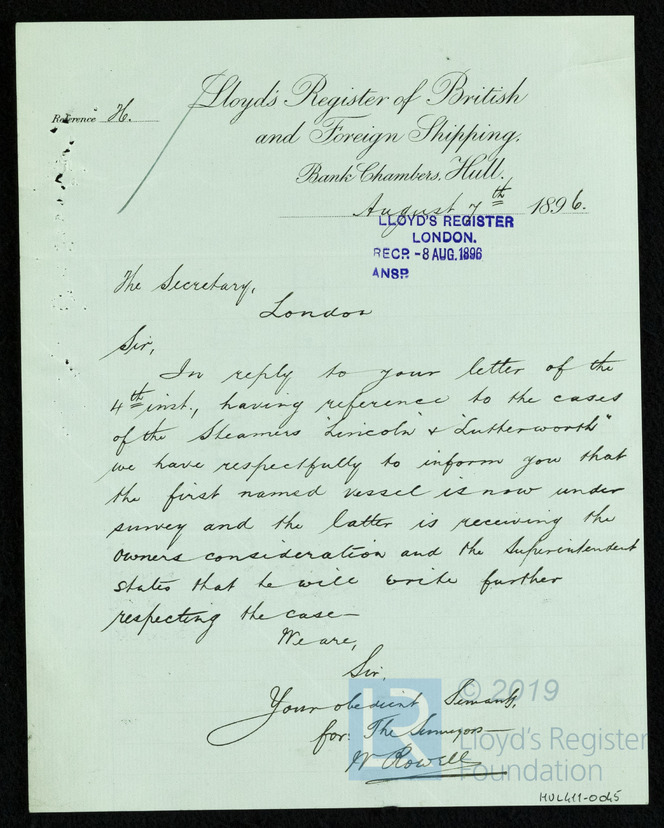 Reference H.
Lloyd's Register of British
and Foreign Shipping.
Bank Chambers, Hull.
August 7th 1896.
LLOYD'S REGISTER
LONDON.
RECD. -8 AUG. 1896
ANSD.
The Secretary,
London
Sir,
In reply to your letter of the
4th inst., having reference to the cases
of the Steamers "Lincoln" & "Lutterworth"
we have respectfully to inform you that
the first named vessel is now under
survey and the latter is receiving the
owners consideration and the Superintendent
states that he will write further
respecting the case—
We are,
Sir,
Your obedient Servants,
for: The Surveyors—
W Rowell
© 2019
Lloyd's Register
Foundation
LR
HUL411-0045